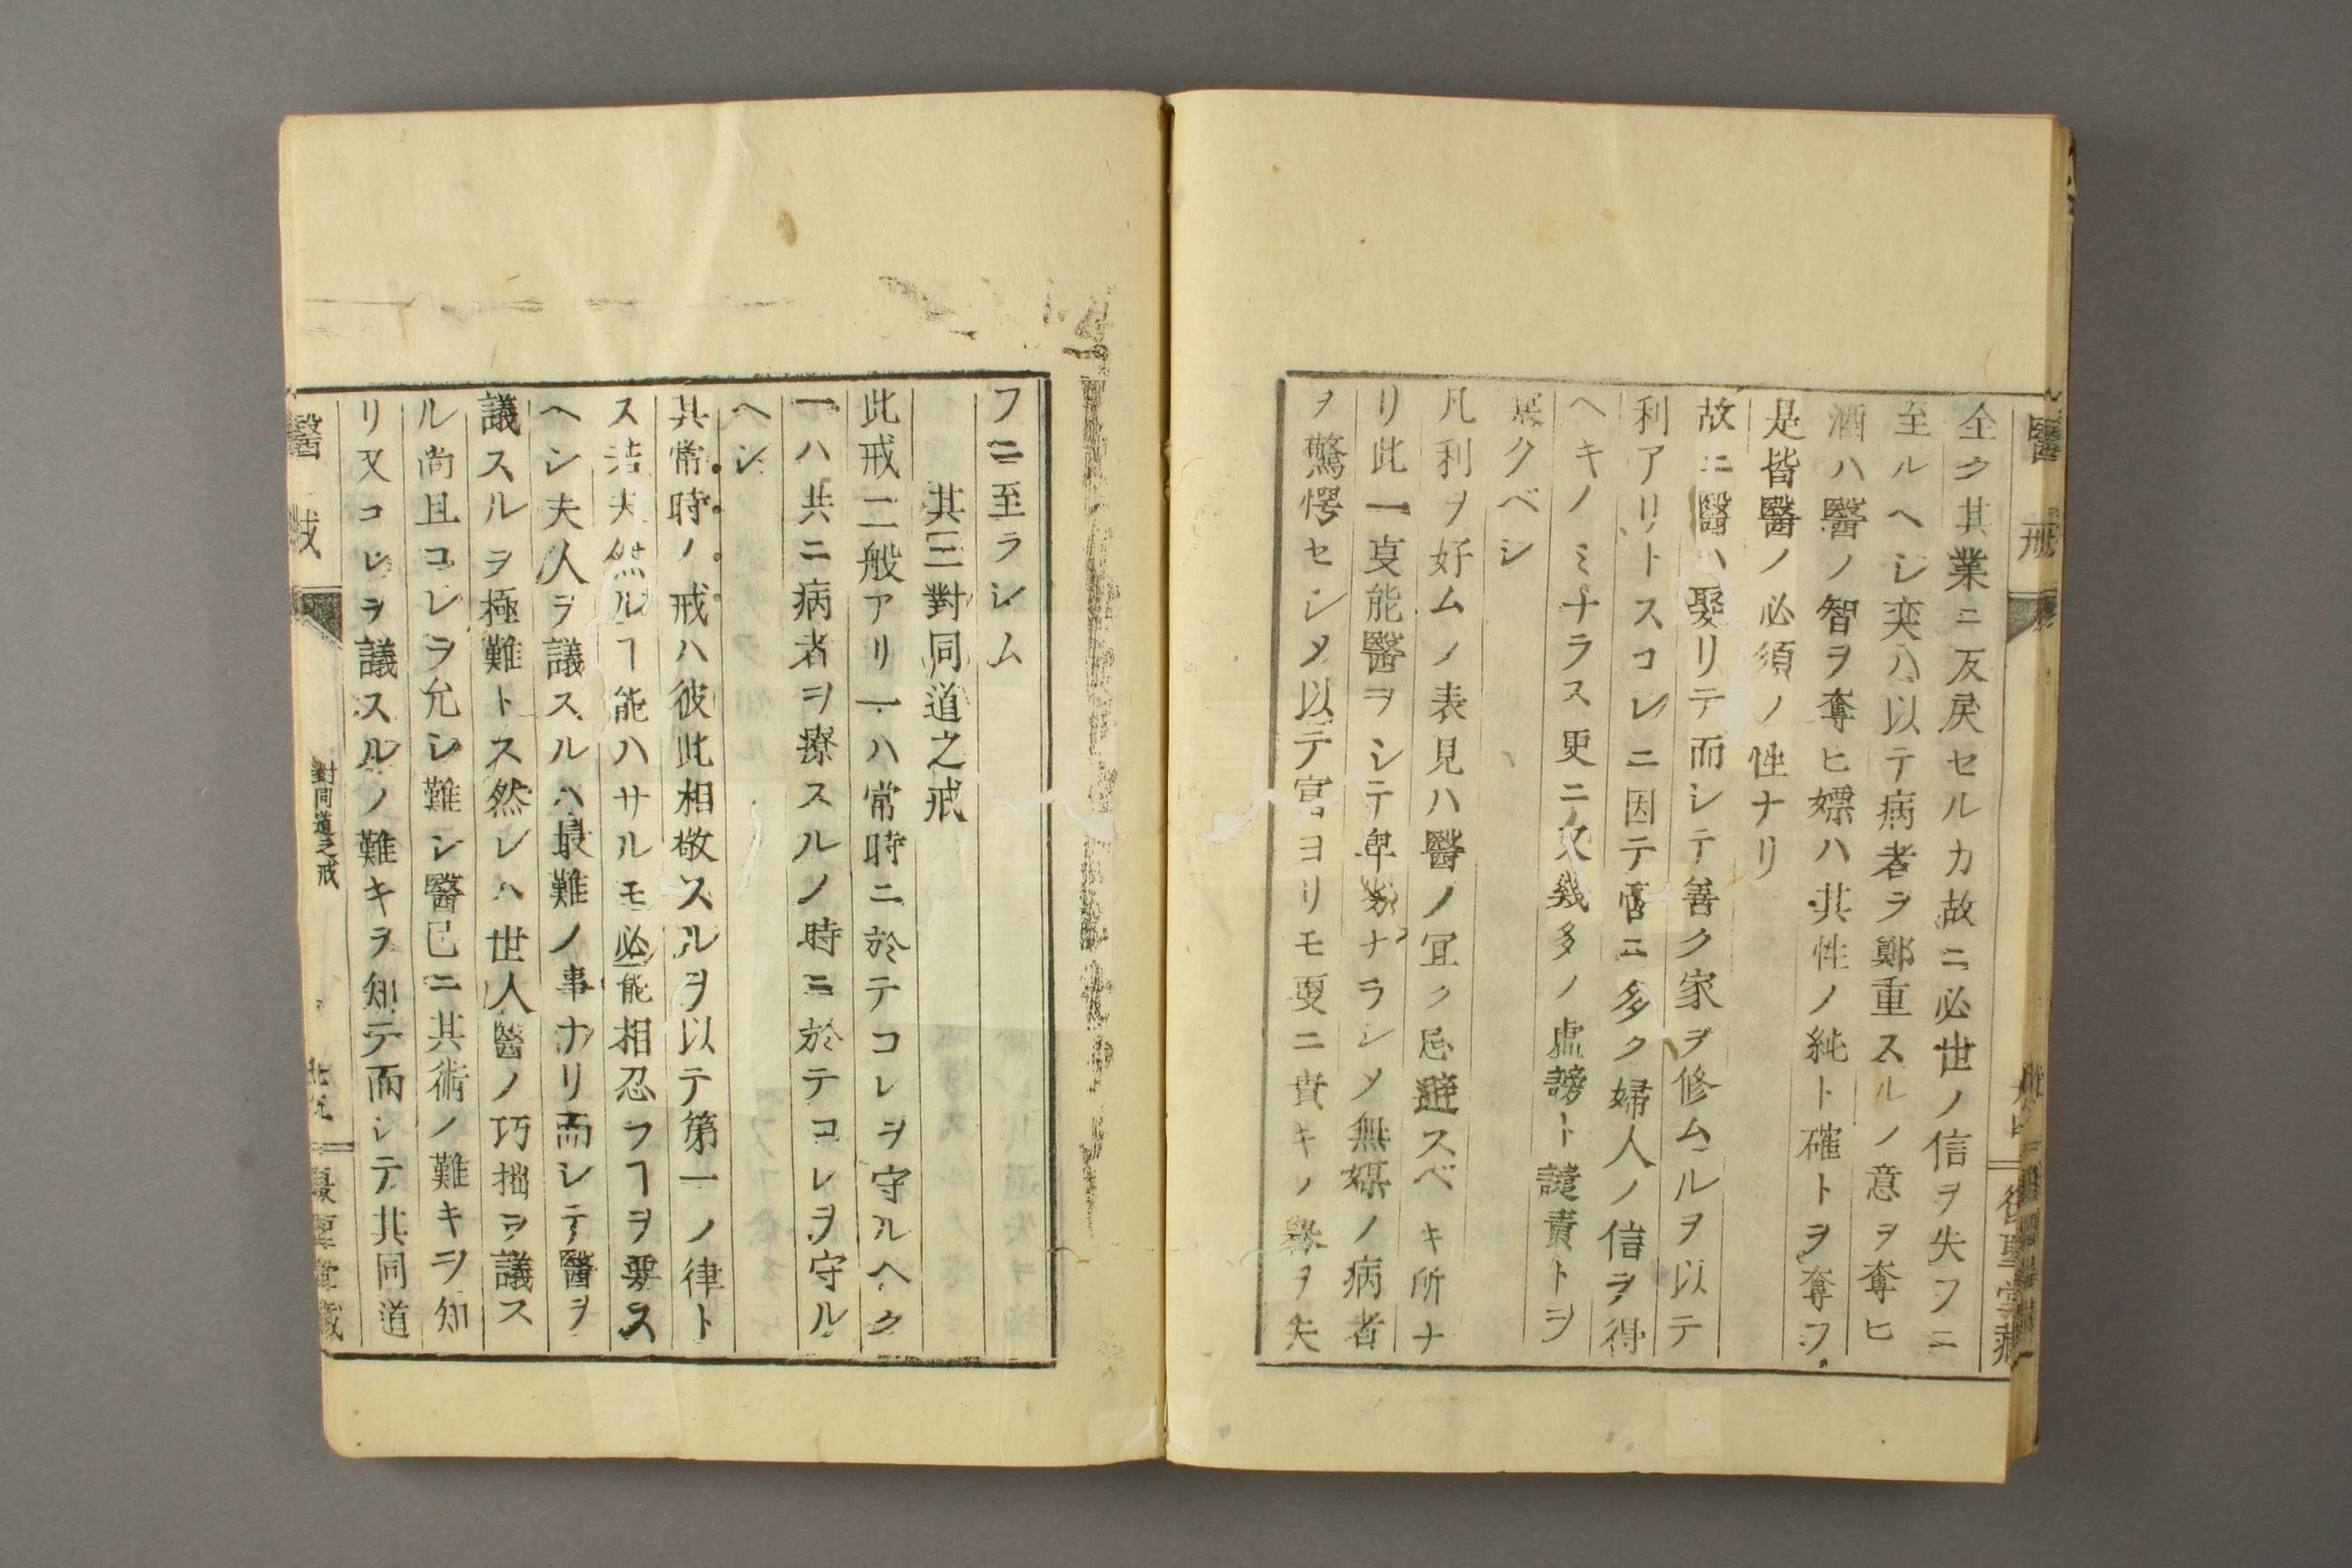 醫戒
全ク其業ニ反戻セルカ故ニ必世ノ信ヲ失フニ
至ルヘシ奕ハ以テ病者ヲ鄭重スルノ意ヲ奪ヒ
酒ハ醫ノ智ヲ奪ヒ嫖ハ其性ノ純ト確トヲ奪フ
是皆醫ノ必須ノ性ナリ
故ニ醫ハ娶リテ而シテ善ク家ヲ修ムルヲ以テ
利アリトスコレニ因テ啻ニ多ク婦人ノ信ヲ得
ヘキノミナラス更ニ又幾多ノ虚謗ト譴責トヲ
クベシ
凡利ヲ好ムノ表見ハ醫ノ宜ク忌避スベキ所ナ
リ此一事能醫ヲシテ卑劣ナラシメ無嫖ノ病者
ヲ驚愕セシメ以テ富ヨリモ更ニ貴キノ譽ヲ失
フニ至ラシム
其三對同道之戒
此戒二般アリ一ハ常時ニ於テコレヲ守ルヘク
一ハ共ニ病者ヲ療スルノ時ニ於テコレヲ守ル
ヘシ
其常時ノ戒ハ彼此相敬スルヲ以テ第一ノ律ト
ス若夫然ルヿ能ハサルモ必能相忍フヿヲ要ス
ヘシ夫人ヲ議スルハ最難ノ事ナリ而シテ醫ヲ
議スルヲ極難トス然レハ世人醫ノ巧拙ヲ議ス
ル尚且コレヲ允シ難シ醫已ニ其術ノ難キヲ知
リ又コレヲ議スルノ難キヲ知テ而シテ其同道
醫戒
對同道之戒